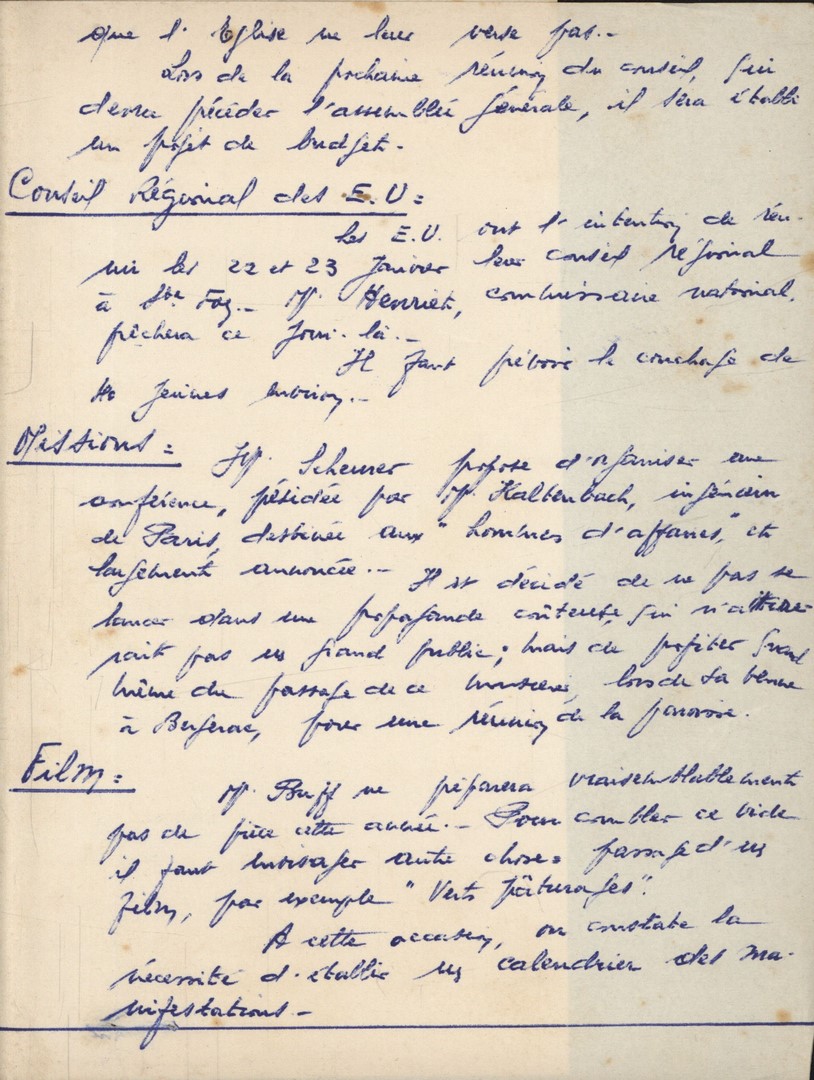 que l'Eglise ne leur verse pas.-
Lors de la prochaine réunion du conseil, qui
devra précéder l'assemblée générale, il sera établi
un projet de budget.-
Conseil Régional des E.U =
Les E.U. ont l'intention de réu-
nir les 22 et 23 Janvier leur conseil régional
à Ste Foy.- M. Henriet, commissaire national,
prêchera ce jour-là.-
Il faut prévoir le couchage de
40 jeunes environ.-
Missions =
M. Scheurer propose d'organiser une
conférence, présidée par M. Kaltenbach, ingénieur
de Paris, destinée aux "hommes d'affaires," et
largement annoncée.- Il est décidé de ne pas se
lancer dans une propagande coûteuse, qui n'attirer
rait pas un grand public; mais de profiter quand
même du passage de ce monsieur, lors de sa venue
à Bergerac, pour une réunion de la paroisse.
Film =
M. Buff ne préparera vraisemblablement
pas de pièce cette année.- Pour combler ce vide
il faut envisager autre chose = passage d'un
film, par exemple "Verts pâturages".
A cette occasion, on constate la
nécessité d'établir un calendrier des ma-
nifestations.-